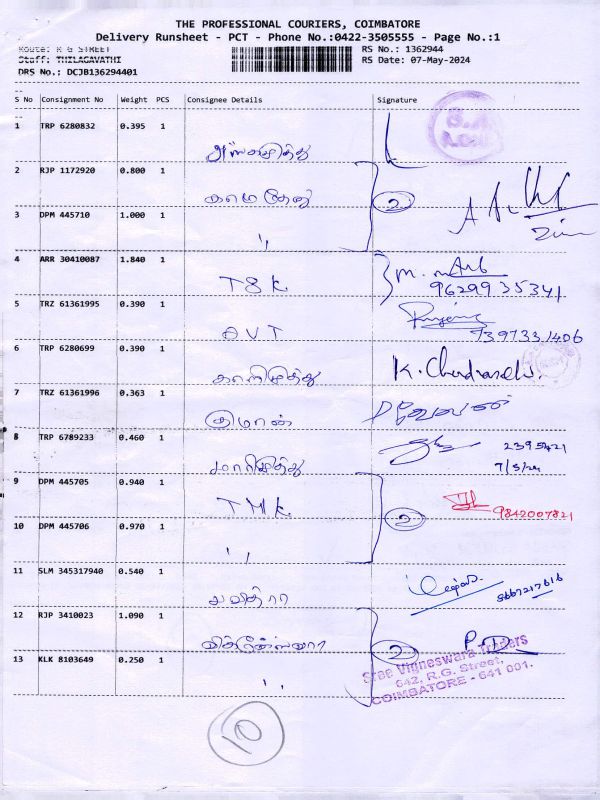 THE PROFESSIONAL COURIERS, COIMBATORE
Delivery Runsheet - PCT - Phone No.:0422-3505555 - Page No.:1
Route: R G STREET RS No.: 1362944
Staff: THILAGAVATHI RS Date: 07-May-2024
DRS No.: DCJB136294401
S No Consignment No Weight PCS Consignee Details Signature
1 TRP 6280832 0.395 1
2 RJP 1172920 0.800 1
காமதேனு 2
3 DPM 445710 1.000 1
"
4 ARR 30410087 1.840 1
T8K 9629935341
5 TRZ 61361995 0.390 1
OVT 7397331406
6 TRP 6280699 0.390 1
காளிமுத்து K.
7 TRZ 61361996 0.363 1
8 TRP 6789233 0.460 1
மாரிமுத்து 2395421
7/5/24
9 DPM 445705 0.940 1
TMK 9842007821
10 DPM 445706 0.970 1 2
"
11 SLM 345317940 0.540 1
பவித்ரா
12 RJP 3410023 1.090 1
விக்னேஸ்வரா 2
13 KLK 8103649 0.250 1
"
Sree Vigneswara Traders
642, R.G. Street,
COIMBATORE - 641 001.
10